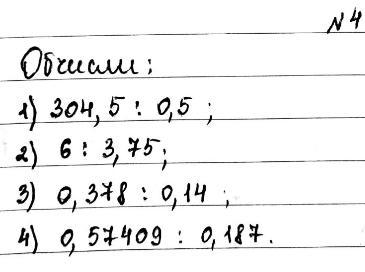 N4
Обчисли:
1) 304,5 : 0,5 ;
2) 6 : 3,75;
3) 0,378 : 0,14 ;
4) 0,57409 : 0,187.